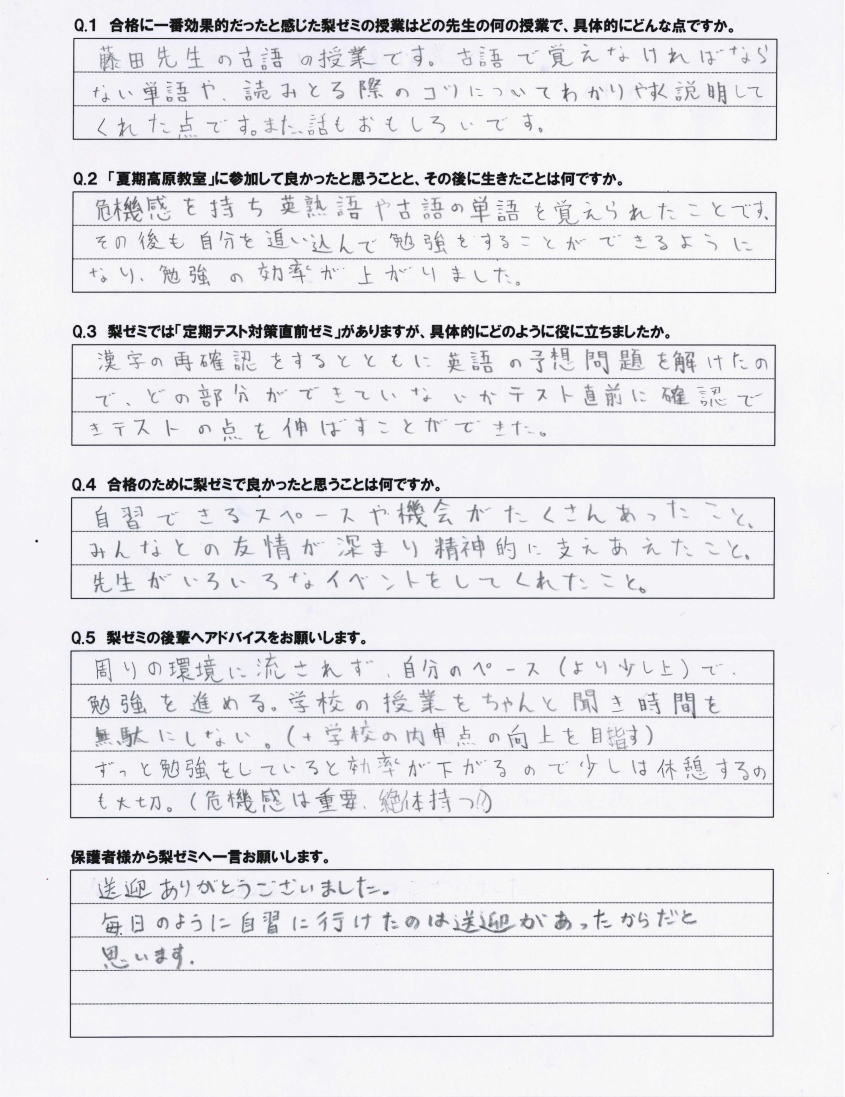 Q.1 合格に一番効果的だったと感じた梨ゼミの授業はどの先生の何の授業で、具体的にどんな点ですか。
藤田先生の古語の授業です。古語で覚えなければなら
ない単語や、読みとる際のコツについてわかりやすく説明して
くれた点です。また、話もおもしろいです。
Q.2 「夏期高原教室」に参加して良かったと思うことと、その後に生きたことは何ですか。
危機感を持ち英熟語や古語の単語を覚えられたことです。
その後も自分を追い込んで勉強をすることができるように
なり、勉強の効率が上がりました。
Q.3 梨ゼミでは「定期テスト対策直前ゼミ」がありますが、具体的にどのように役に立ちましたか。
漢字の再確認をするとともに英語の予想問題を解けたの
で、どの部分ができていないかテスト直前に確認で
きテストの点を伸ばすことができた。
Q.4 合格のために梨ゼミで良かったと思うことは何ですか。
自習できるスペースや機会がたくさんあったこと、
みんなとの友情が深まり精神的に支えあえたこと。
先生がいろいろなイベントをしてくれたこと。
Q.5 梨ゼミの後輩へアドバイスをお願いします。
周りの環境に流されず、自分のペース(より少し上)で、
勉強を進める。学校の授業をちゃんと聞き時間を
無駄にしない。(+学校の内申点の向上を目指す)
ずっと勉強をしていると効率が下がるので少しは休憩するの
も大切。(危機感は重要、絶体持つ!!)
保護者様から梨ゼミへ一言お願いします。
送迎ありがとうございました。
毎日のように自習に行けたのは送迎があったからだと
思います。